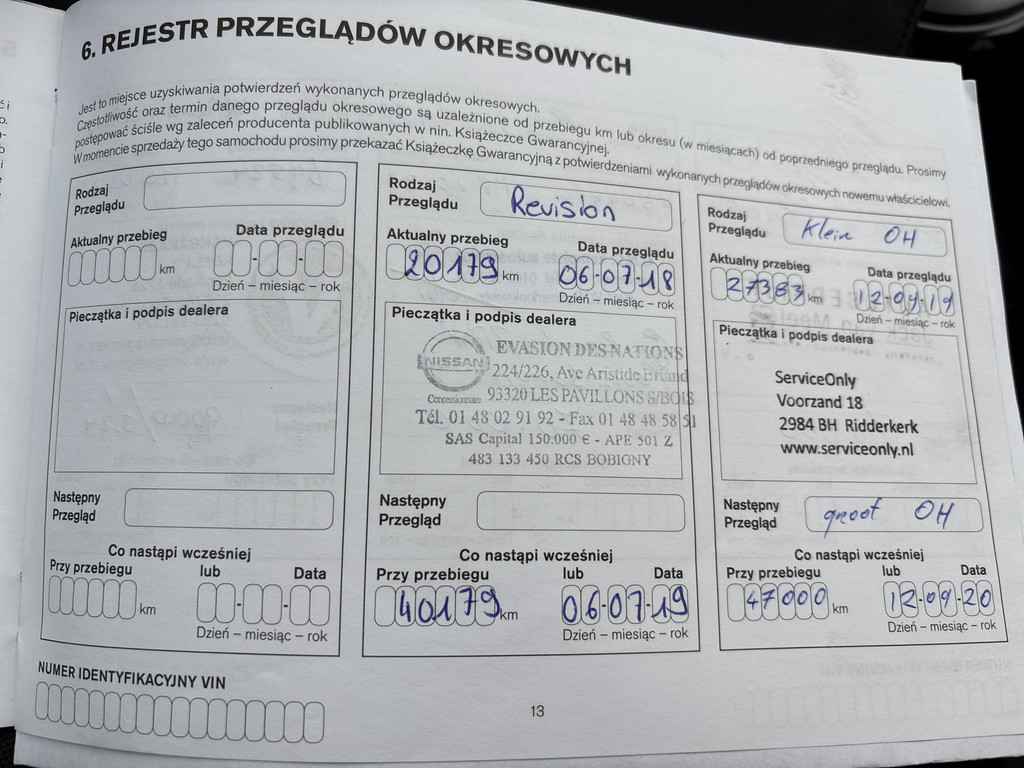 6. REJESTR PRZEGLĄDÓW OKRESOWYCH
Jest to miejsce uzyskiwania potwierdzeń wykonanych przeglądów okresowych.
Częstotliwość oraz termin danego przeglądu okresowego są uzależnione od przebiegu km lub okresu (w miesiącach) od poprzedniego przeglądu. Prosimy
postępować ściśle wg zaleceń producenta publikowanych w nin. Książeczce Gwarancyjnej.
W momencie sprzedaży tego samochodu prosimy przekazać Książeczkę Gwarancyjną z potwierdzeniami wykonanych przeglądów okresowych nowemu właścicielowi.
Rodzaj
Przeglądu
Aktualny przebieg
Data przeglądu
km
Dzień – miesiąc – rok
Pieczątka i podpis dealera
Następny
Przegląd
Co nastąpi wcześniej
Przy przebiegu lub Data
km
Dzień – miesiąc – rok
Rodzaj
Przeglądu
Revision
Aktualny przebieg
Data przeglądu
20179 km
06-07-18
Dzień – miesiąc – rok
Pieczątka i podpis dealera
NISSAN
EVASION DES NATIONS
224/226, Ave Aristide Briand
Concessionnaire 93320 LES PAVILLONS S/BOIS
Tél. 01 48 02 91 92 - Fax 01 48 48 58 51
SAS Capital 150.000 € - APE 501 Z
483 133 450 RCS BOBIGNY
Następny
Przegląd
Co nastąpi wcześniej
Przy przebiegu lub Data
40179 km
06-07-19
Dzień – miesiąc – rok
Rodzaj
Przeglądu
Klein OH
Aktualny przebieg
Data przeglądu
27383 km
12-09-19
Dzień – miesiąc – rok
Pieczątka i podpis dealera
ServiceOnly
Voorzand 18
2984 BH Ridderkerk
www.serviceonly.nl
Następny
Przegląd
groot OH
Co nastąpi wcześniej
Przy przebiegu lub Data
47000 km
12-09-20
Dzień – miesiąc – rok
NUMER IDENTYFIKACYJNY VIN
13